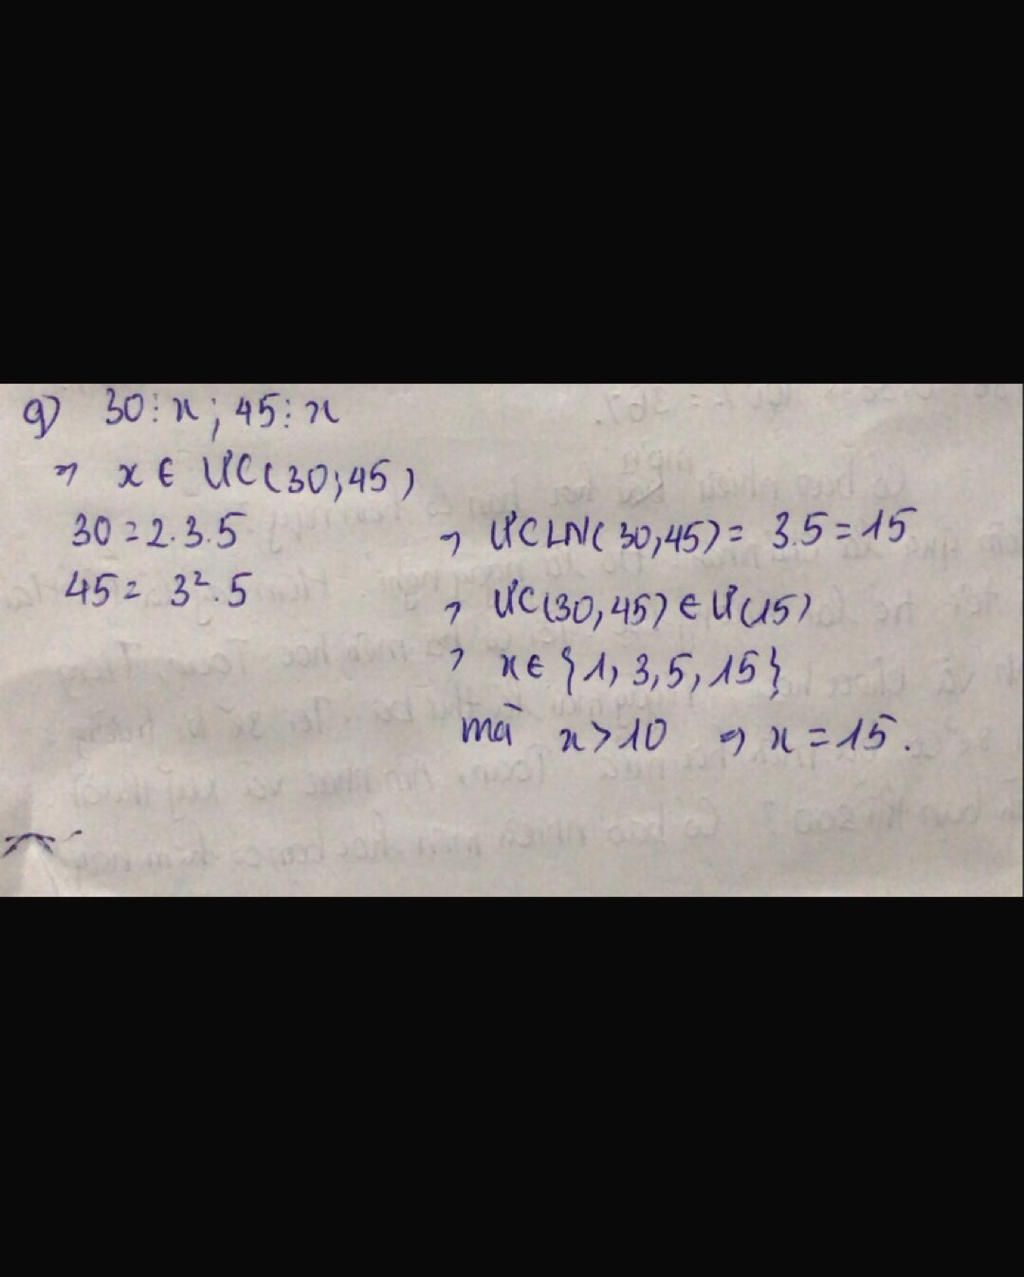 g) 30⋮x; 45⋮x
⇒ x ∈ ƯC(30;45)
30 = 2.3.5
45 = 3².5
⇒ ƯCLN(30,45) = 3.5 = 15
⇒ ƯC(30,45) ∈ Ư(15)
⇒ x ∈ {1, 3, 5, 15}
mà x > 10 ⇒ x = 15.